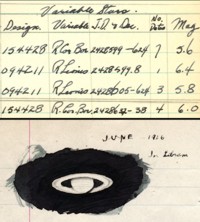 Variable Stars.
Design. Variable J.D. & Dec. No. Dates Mag
154428 R Cor Bor 2428599-624 7 5.6
094211 R Leonis 2428599.8 1 6.4
094211 R Leonis 2428605-624 3 5.8
154428 R Cor Bor 2428622-38 4 6.0
JUNE 1916
In